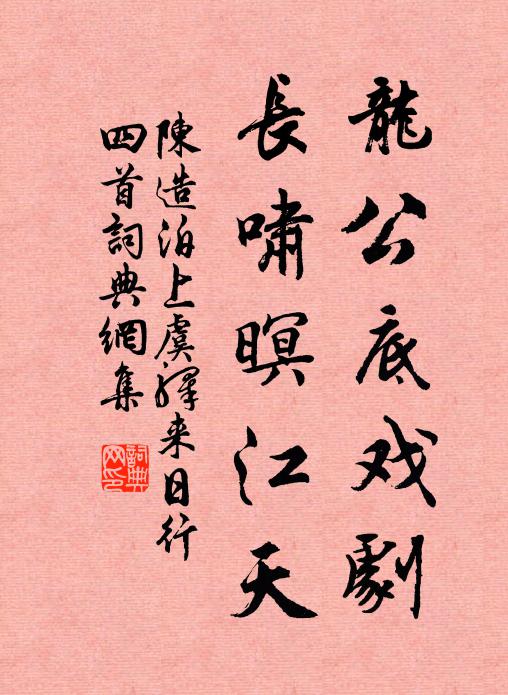 龍公底戏劇
長啸暝江天
陳造泊上虞驛来日行
四首詞典網集
詞典网印